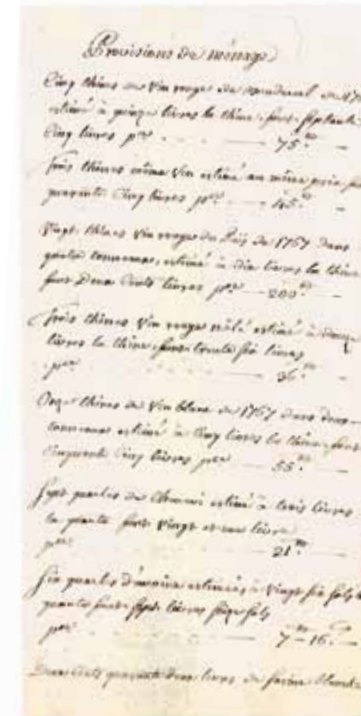 Provisions de ménage
Cinq thines de Vin rouge de de 17
estimé à quinze livres la thine, font septante
Cinq livres pr. 75.
Trois thines même Vin estimé au même prix
quarante Cinq livres pr. 45.
Vingt thines Vin rouge du Païs de 1767 dans
quatre tonneaux, estimé à Dix livres la thine
font Deux Cents livres pr. 200
Trois thines Vin rouge mêlé estimé à douze
livres la thine, font trente six livres
pr. 36.
Onze thines de Vin blanc de 1767 dans deux
tonneaux estimé à Cinq livres la thine, font
Cinquante Cinq livres pr. 55.
Sept quartes de estimé à trois livres
la quarte font Vingt et une livre
pr. 21.
Six quartes d'avoine estimées à Vingt six sols la
quarte font Sept livres seize sols
pr. 7-16.
Deux Cents quarante deux livres de farine blanche